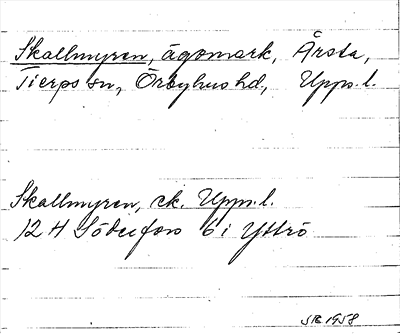 Skallmyren, ägomark, Årsta,
Tierps sn, Örbyhus hd, Upps. l.
Skallmyren, ek. Upps. l.
12 H Söderfors 6 i Yttrö
SB 1958